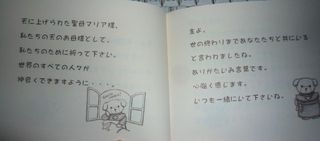 天に上げられた聖母マリア様、
私たちの天のお母様として、
私たちのために祈って下さい。
世界のすべての人々が
仲良くできますように・・・・。
主よ、
世の終わりまであなたたちと共にいる
と言われましたね。
ありがたいみ言葉です。
心強く感じます。
いつも一緒にいて下さいね。